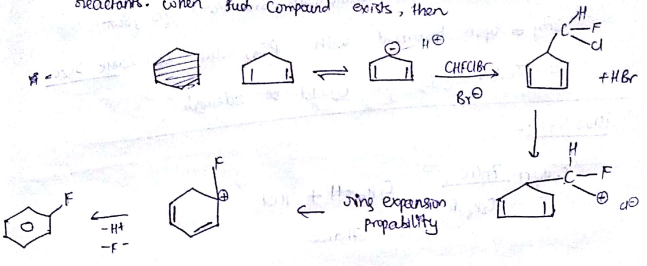 reactants. When such compound exists, then
⊖ H⊕
CHFClBr
Br⊖
H
C
F
Cl
+HBr
H
C
F
⊕ Cl⊖
ring expansion
propability
F
⊕
-H+
-F-
F